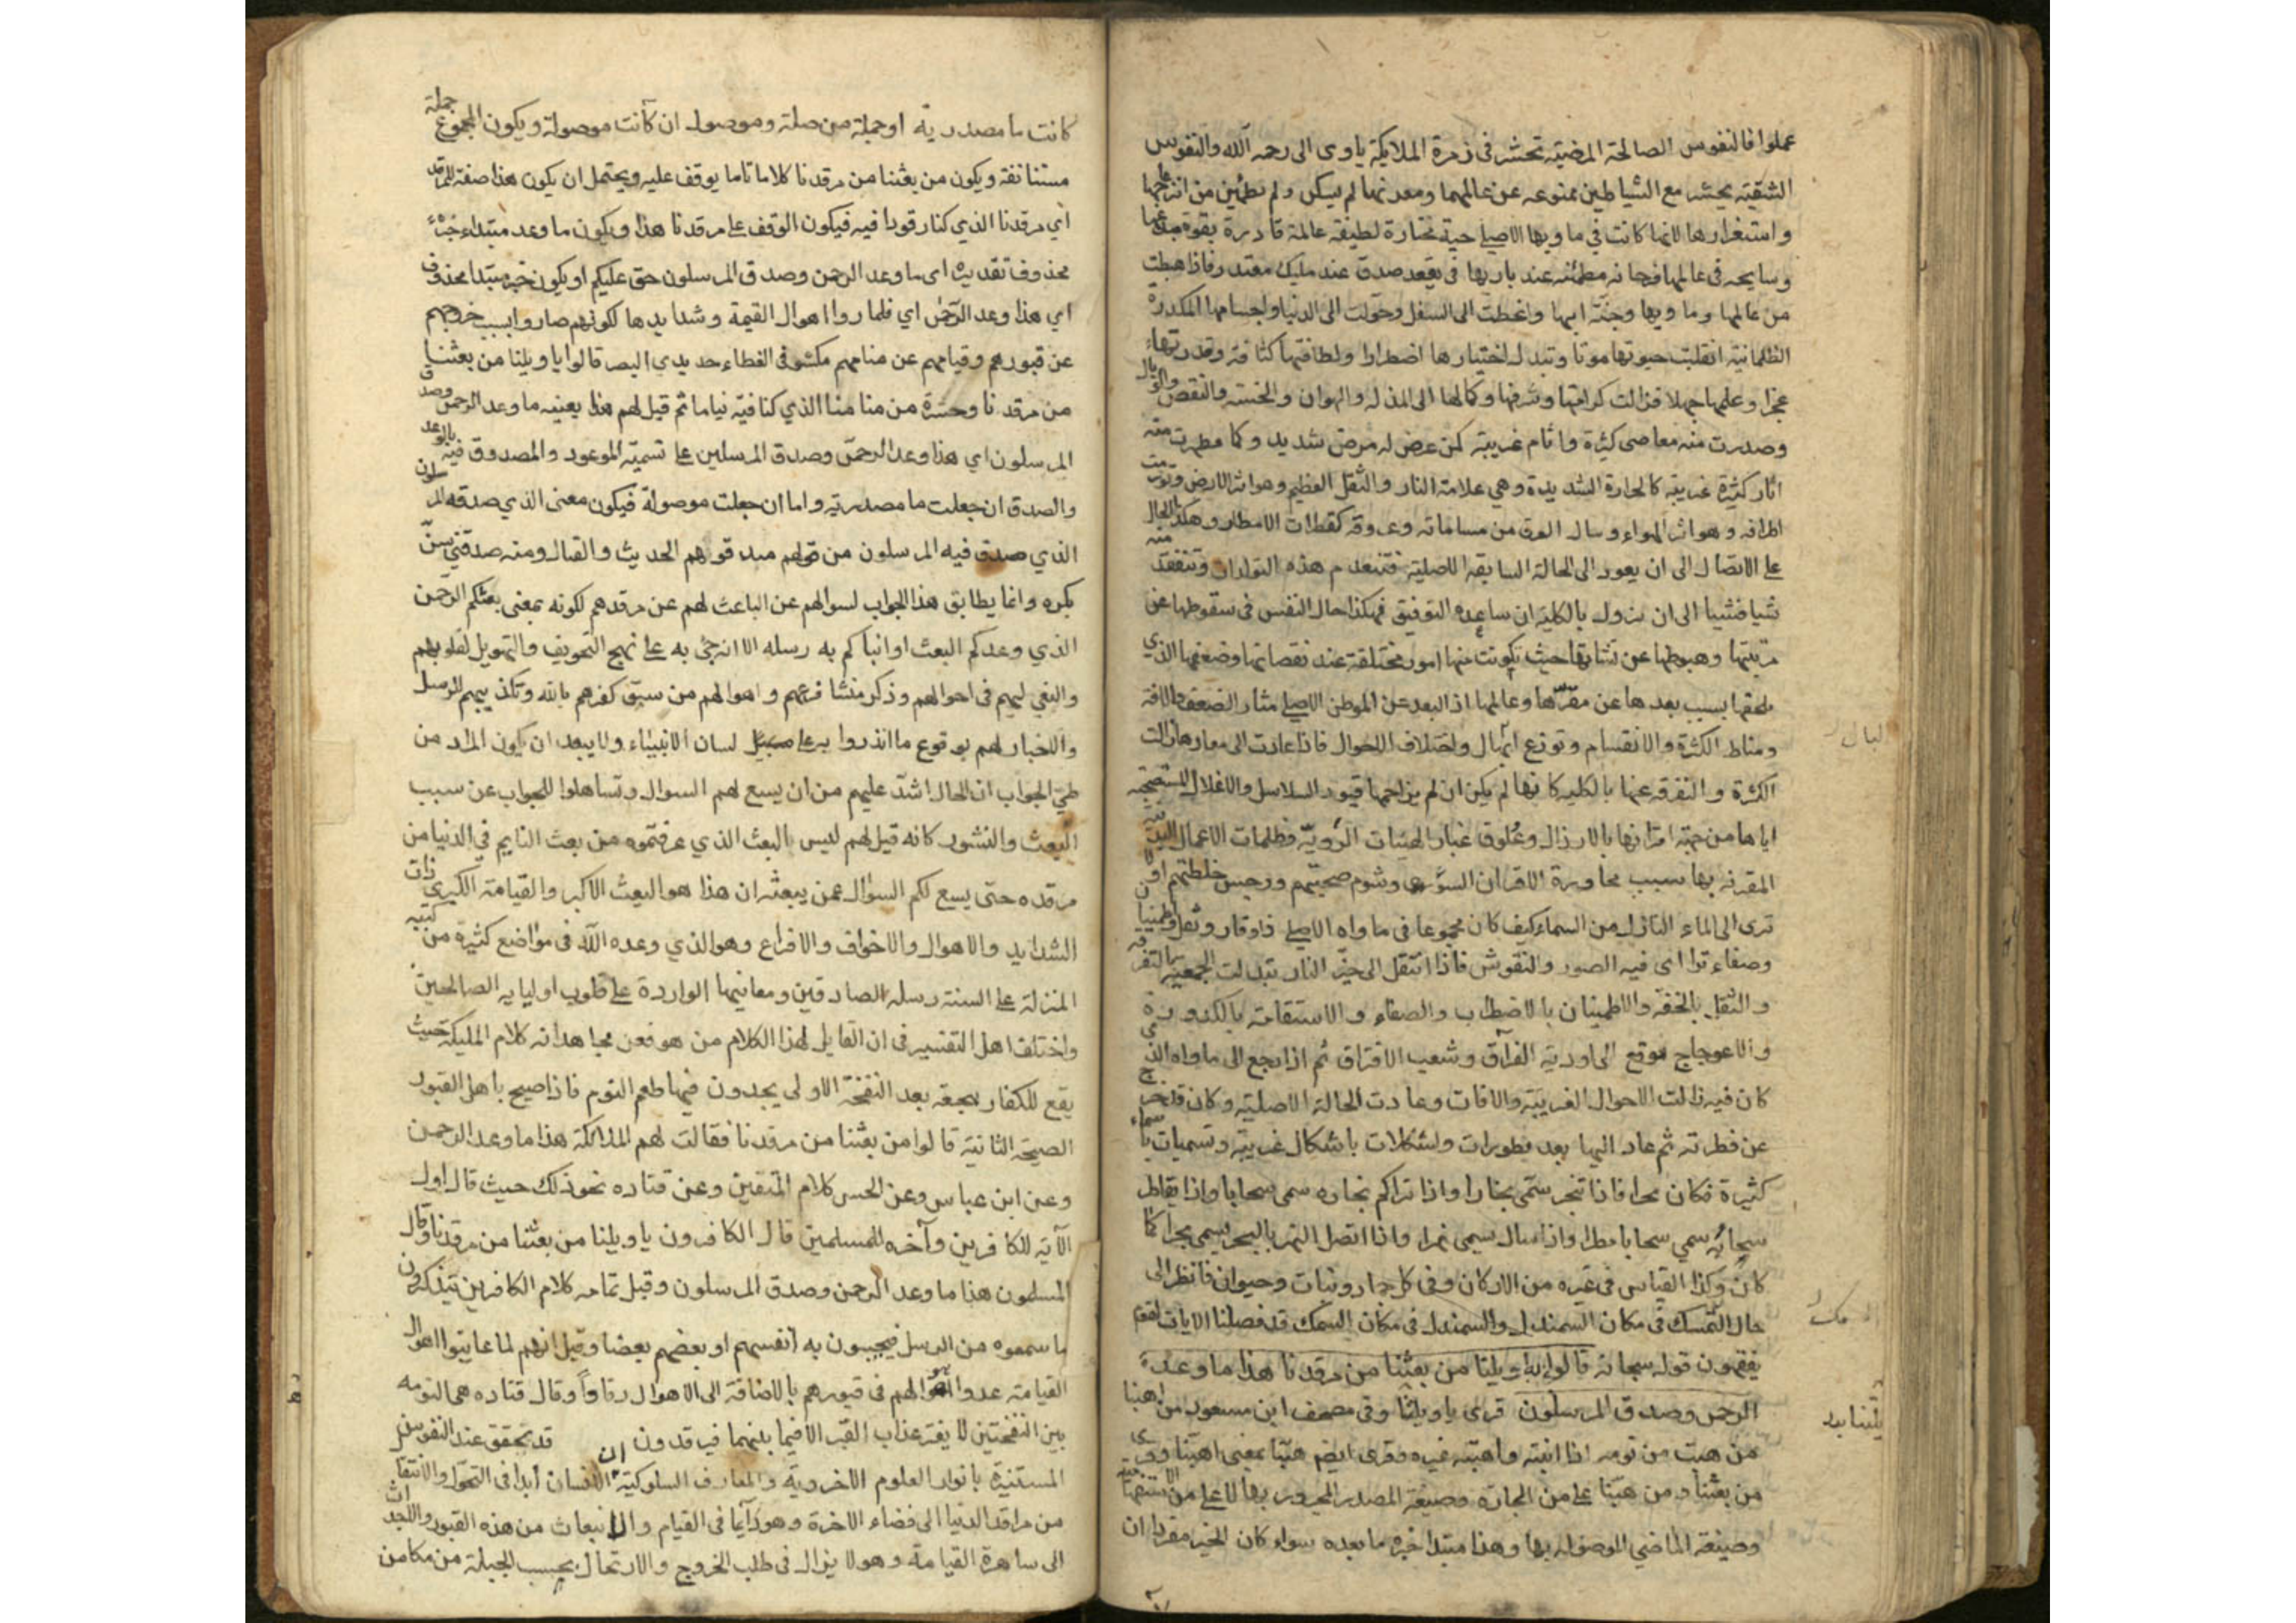 عملوا فالنفوس الصالحة المرضية تحشر في زمرة الملايكة ياوى الى رحمه الله والنفوس
الشقية يحشر مع الشياطين ممنوعه عن عالمهما ومعدنها لم يسكن ولم تطمئن من انزعاجها
واستغرارها لانها كانت في ماويها الاصلي حية مختارة لطيفة عالمة قادرة بقوة مبدعها
وسايحه في عالمها فرحانه مطمئنه عند باريها في مقعد صدق عند مليك مقتدر فاذا هبطت
من عالمها وماويها وجنة ابيها وانحطت الى السفل وحولت الى الدنيا واجسامها المكدرة
الظلمانية انقلبت حيوتها موتا وتبدل اختيارها اضطرارا ولطافتها كثافة وقدرتها
عجزا وعلمها جهلا فزالت كرامتها وشرفها وكمالها الى المذلة والهوان والخسة والنقص والوبال
وصدرت منه معاصي كثيرة واثام غريبة كمن عرض له مرض شديد وكما ظهرت منه
اثار كثيرة غريبة كالحرارة الشديدة وهي علامة النار والثقل العظيم وهو اثر الارض وتورمت
اطرافه وهو اثر الهواء وسال العرق من مساماته وعروقه كقطرات الامطار وهكذا الحال
على الاتصال الى ان يعود الى الحالة السابقة الاصلية فتنعدم هذه التولدات وتنفقد منه
شيا فشيا الى ان يزول بالكلية ان ساعده التوفيق فهكذا حال النفس في سقوطها عن
مرتبتها وهبوطها عن نشاتها حيث تكونت منها امور مختلفة عند نقصانها وضعفها الذي
لحقها بسبب بعدها عن مقرها وعالمها اذ البعد عن الموطن الاصلي مثار الضعف والافة
ومناط الكثرة والانقسام وتوزع البال واختلاف الاحوال فاذا عادت الى معادها زالت
الكثرة والتفرقه عنها بالكليه كانها لم يكن ان لم يزاحمها قيود السلاسل والاغلال المستصحبة
اياها من جهة اقترانها بالارذال وعلوق غبار الهيئات الردية وظلمات الاعمال
المقرنه بها بسبب مجاورة الاقران السؤى وشوم صحبتهم ورجس خلطتهم اولا
ترى الى الماء النازل من السماء كيف كان مجموعا في ماواه الاصلي ذا وقار وثقل واطمينان
وصفاء تراى فيه الصور والنقوش فاذا انتقل الى حيز النار تبدلت الجمعية بالتفرقه
والثقل بالخفة والاطمينان بالاضطراب والصفاء والاستقامة بالكدورة
والاعوجاج فوقع الى اودية الفراق وشعب الافتراق ثم اذا رجع الى ماواه الذي
كان فيه زالت الاحوال الغريبة والافات وعادت الحالة الاصلية وكان قد خرج
عن فطرته ثم عاد اليها بعد تطورات واشكالات باشكال غريبة وتسميات باسماء
كثيرة فكان بحرا فاذا تبخر سمى بخارا واذا تراكم بخاره سمى سحابا واذا تقاطر
سحابه سمي سحابا مطرا واذا سال سمى نهرا واذا اتصل النهر بالبحر يسمى بحرا كما
كان وكذا القياس في غيره من الاركان وفي كل جماد ونبات وحيوان فانظر الى
حال السمك في مكان السمندل والسمندل في مكان السمك قد فصلنا الايات لقوم
يفقهون قوله سبحانه قالوا يا ويلنا من بعثنا من مرقدنا هذا ما وعد
الرحمن وصدق المرسلون قرى ياويلتنا وفي مصحف ابن مسعود من اهبنا
من هبت من نومه اذا انتبه واهبته غيره وقرى ايضم هبنا بمعنى اهبنا وقرى
من بعثنا ومن هبنا على من الجارة وصيغة المصدر المجرور بها لا على من الاستفهامية
وصيغة الماضي الموصوله بها وهذا مبتدا خبره ما بعده سواء كان الخبر مفردا ان
يلتنا بدل
كانت ما مصدرية او جملة من صلة وموصول ان كانت موصولة ويكون المجموع جملة
مستنانفة ويكون من بعثنا من مرقدنا كلاما تاما يوقف عليه ويحتمل ان يكون هذا صفة للمرقد
اي مرقدنا الذي كنا رقودا فيه فيكون الوقف على مرقدنا هذا ويكون ما وعد مبتداء خبره
محذوف تقديره اى ما وعد الرحمن وصدق المرسلون حق عليكم او يكون خبر مبتدا محذوف
اي هذا وعد الرحمن اي فلما راوا اهوال القيمة وشدايدها لكونهم صاروا بسبب خروجهم
عن قبورهم وقيامهم عن منامهم مكشوفي الغطاء حديدي البصر قالوا يا ويلنا من بعثنا
من مرقدنا وحشرنا من منامنا الذي كنا فيه نياما ثم قيل لهم هذا بعينه ما وعد الرحمن وصدق
المرسلون اي هذا وعد الرحمن وصدق المرسلين على تسمية الموعود والمصدوق فيه بالوعد
والصدق ان جعلت ما مصدرية واما ان جعلت موصولة فيكون معنى الذي صدقه المرسلون
الذي صدق فيه المرسلون من قولهم صدقوهم الحديث والقتال ومنه صدقني سن
بكره وانما يطابق هذا الجواب لسوالهم عن الباعث لهم عن مرقدهم لكونه بمعنى بعثكم الرحمن
الذي وعدكم البعث او انباكم به رسله الا انه جئ به على نهج التخويف والتهويل لقلوبهم
والنعي اليهم في احوالهم وذكر منشا فزعهم واهوالهم من سبق كفرهم بالله وتكذيبهم للرسل
والاخبار لهم بوقوع ما انذروا به على سبيل لسان الانبياء ولا يبعد ان يكون المراد من
طي الجواب ان الحال اشد عليهم من ان يسع لهم السوال وتساهلوا للجواب عن سبب
البعث والنشور كانه قيل لهم ليس بالبعث الذي عرفتموه من بعث النايم في الدنيا من
مرقده حتى يسع لكم السوال عمن يبعثه ان هذا هو البعث الاكبر والقيامة الكبرى ذات
الشدايد والاهوال والاخواف والافزاع وهو الذي وعده الله في مواضع كثيرة من كتبه
المنزلة على السنة رسله الصادقين ومعانيها الواردة على قلوب اوليايه الصالحين
واختلف اهل التفسير في ان القايل لهذا الكلام من هو فعن مجاهد انه كلام المليكة حيث
يقع للكفار هجعة بعد النفخة الاولى يجدون فيها طعم النوم فاذا صيح باهل القبور
الصيحة الثانية قالوا من بعثنا من مرقدنا فقالت لهم الملائكة هذا ما وعد الرحمن
وعن ابن عباس وعن الحسن كلام المتقين وعن قتاده نحو ذلك حيث قال اول
الآية للكافرين وآخره للمسلمين قال الكافرون يا ويلنا من بعثنا من مرقدنا وقال
المسلمون هذا ما وعد الرحمن وصدق المرسلون وقيل تمامه كلام الكافرين يتذكرون
ما سمعوه من الرسل فيجيبون به انفسهم او بعضهم بعضا وقيل انهم لما عاينوا اهوال
القيامة عدوا احوالهم في قبورهم بالاضافة الى الاهوال رقادا وقال قتاده هي النومه
بين النفختين لا يفتر عذاب القبر الا فيما بينهما فيرقدون قد تحقق عند النفوس
المستنيرة بانوار العلوم الاخروية والمعارف السلوكية ان الانسان أبدا في التحول والانتقال
من مراقد الدنيا الى فضاء الاخرة وهو دآيما في القيام والانبعاث من هذه القبور والاجداث
الى ساهرة القيامة وهو لا يزال في طلب الخروج والارتحال بحسب الجبلة من مكامن